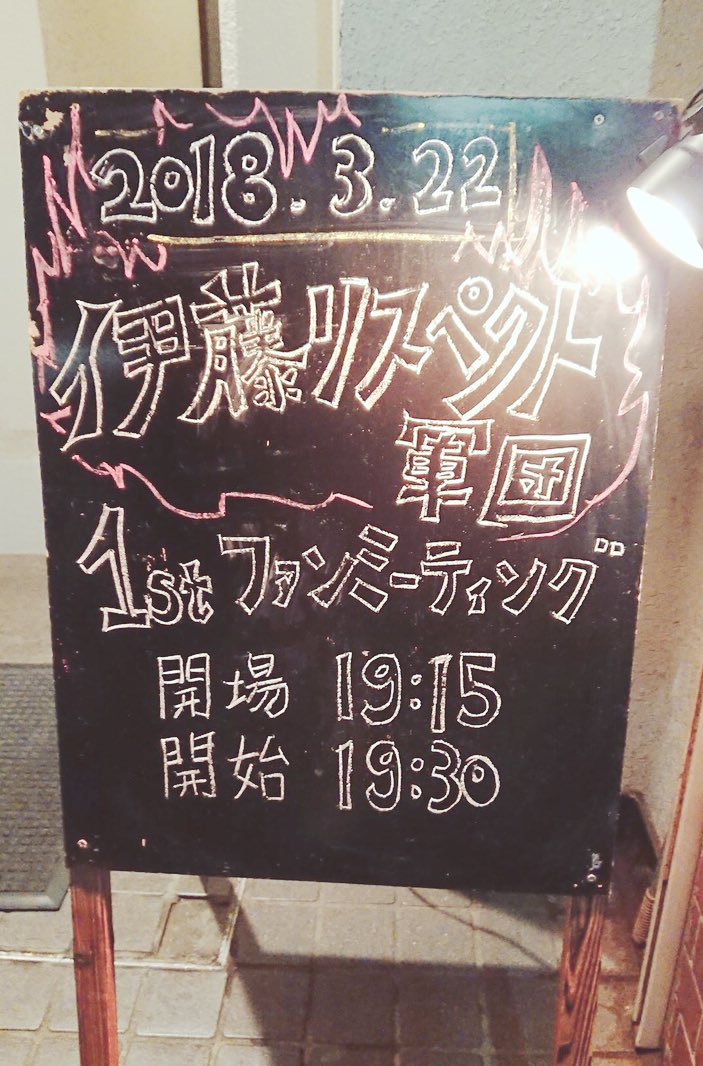 2018.3.22
伊藤リスペクト
軍団
1st ファンミーティング
開場 19:15
開始 19:30